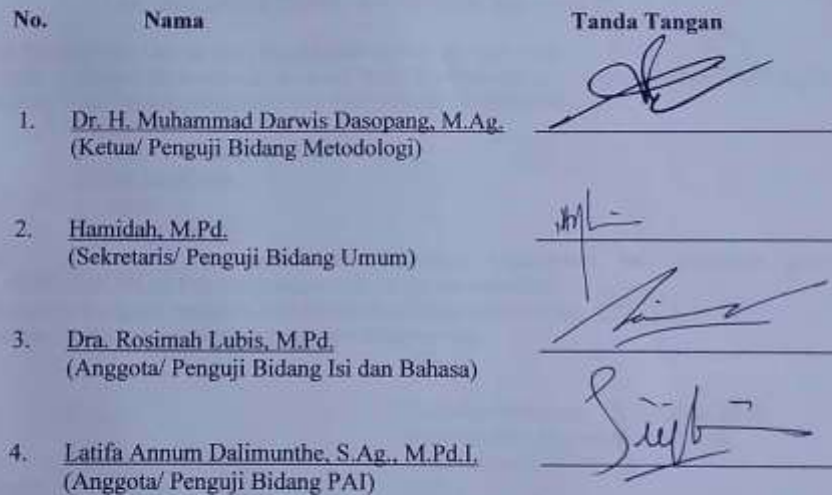 No. Nama Tanda Tangan
1. Dr. H. Muhammad Darwis Dasopang, M.Ag.
(Ketua/ Penguji Bidang Metodologi)
2. Hamidah, M.Pd.
(Sekretaris/ Penguji Bidang Umum)
3. Dra. Rosimah Lubis, M.Pd.
(Anggota/ Penguji Bidang Isi dan Bahasa)
4. Latifa Annum Dalimunthe, S.Ag., M.Pd.I.
(Anggota/ Penguji Bidang PAI)